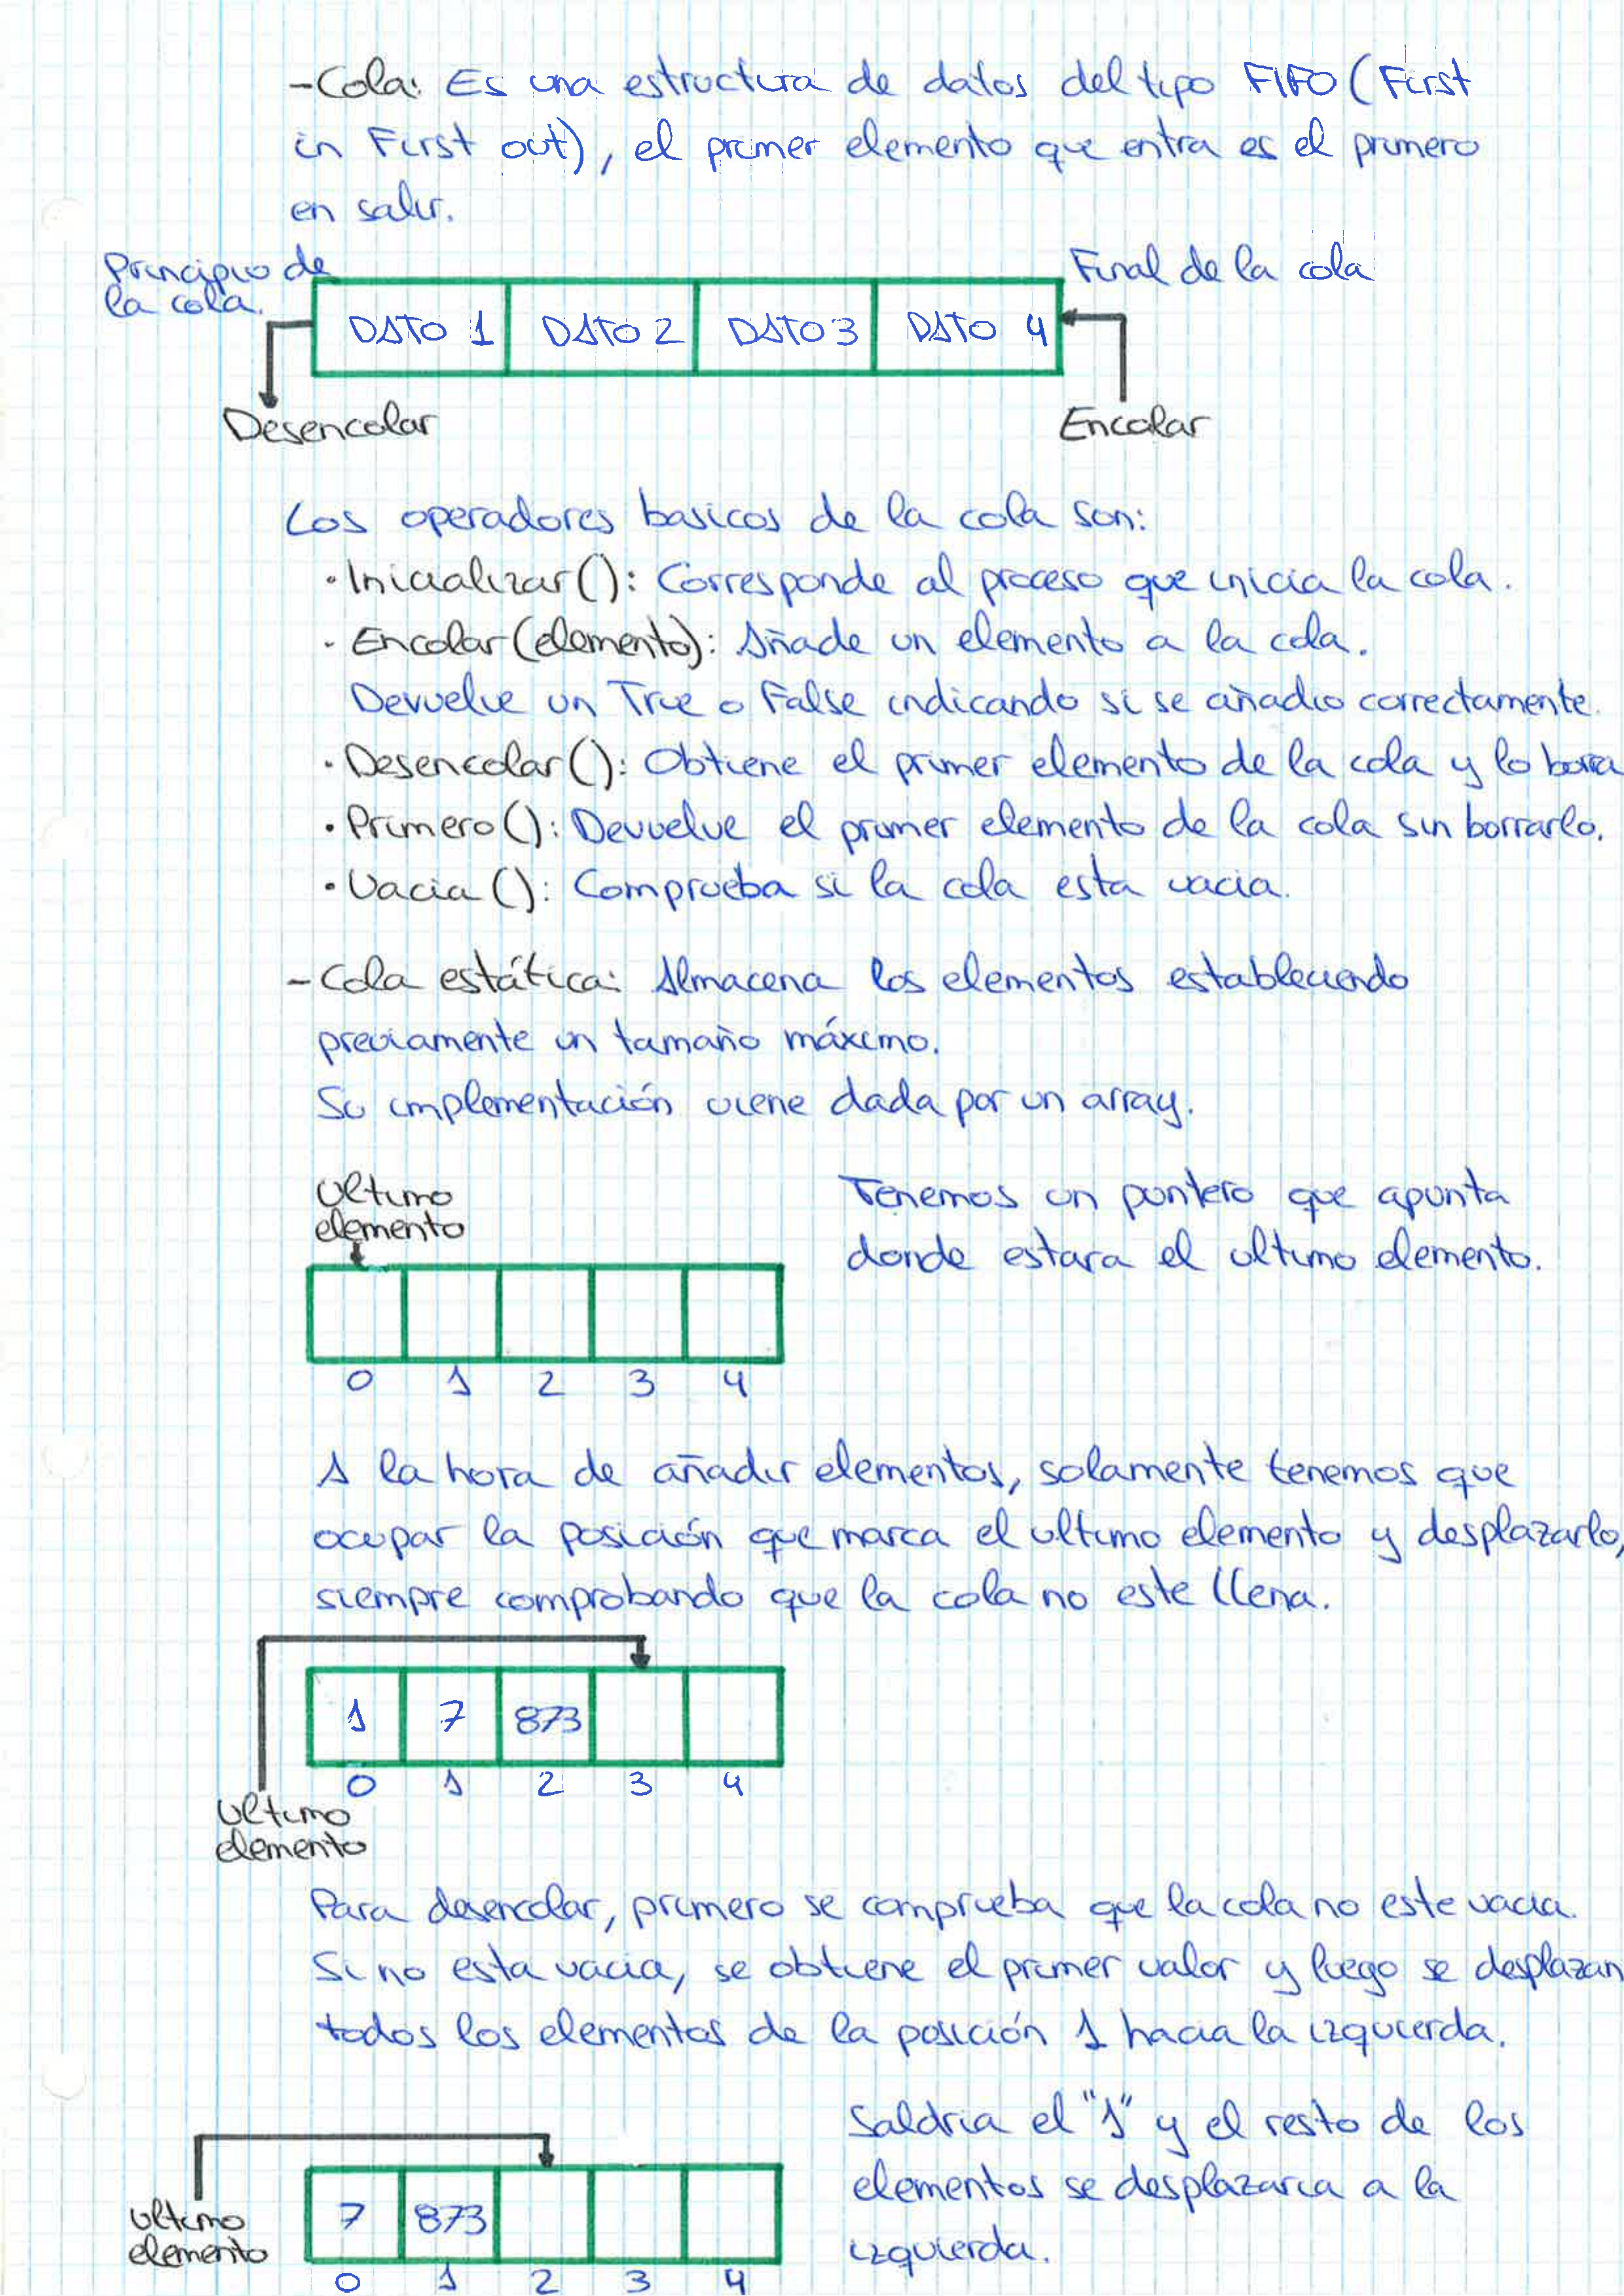 -Cola: Es una estructura de datos del tipo FIFO (First
in First out), el primer elemento que entra es el primero
en salir.
Principio de
la cola.
Final de la cola
DATO 1 DATO 2 DATO 3 DATO 4
Desencolar
Encolar
Los operadores basicos de la cola son:
· Inicializar(): Corresponde al proceso que inicia la cola.
· Encolar(elemento): Añade un elemento a la cola.
Devuelve un True o False indicando si se añadio correctamente.
· Desencolar(): Obtiene el primer elemento de la cola y lo borra
· Primero(): Devuelve el primer elemento de la cola sin borrarlo.
· Vacia(): Comprueba si la cola esta vacia.
-Cola estática: Almacena los elementos estableciendo
previamente un tamaño máximo.
Su implementación viene dada por un array.
Ultimo
elemento
Tenemos un puntero que apunta
donde estara el ultimo elemento.
0 1 2 3 4
A la hora de añadir elementos, solamente tenemos que
ocupar la posición que marca el ultimo elemento y desplazarlo,
siempre comprobando que la cola no este llena.
1 7 873
0 1 2 3 4
Ultimo
elemento
Para desencolar, primero se comprueba que la cola no este vacia.
Si no esta vacia, se obtiene el primer valor y luego se desplazan
todos los elementos de la posición 1 hacia la izquierda.
Saldria el "1" y el resto de los
elementos se desplazaria a la
izquierda.
Ultimo
elemento
7 873
0 1 2 3 4